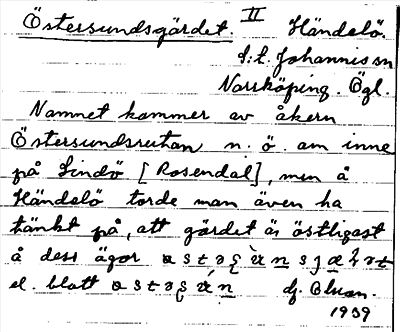 Östersundsgärdet. II Händelö.
s:t. Johannis sn
Norrköping. Ögl.
Namnet kommer av åkern
Östersundsrutan n. ö. om inne
på Lindö [Rosendal], men å
Händelö torde man även ha
tänkt på, att gärdet är östligast
å dess ägor
el. blott
1939